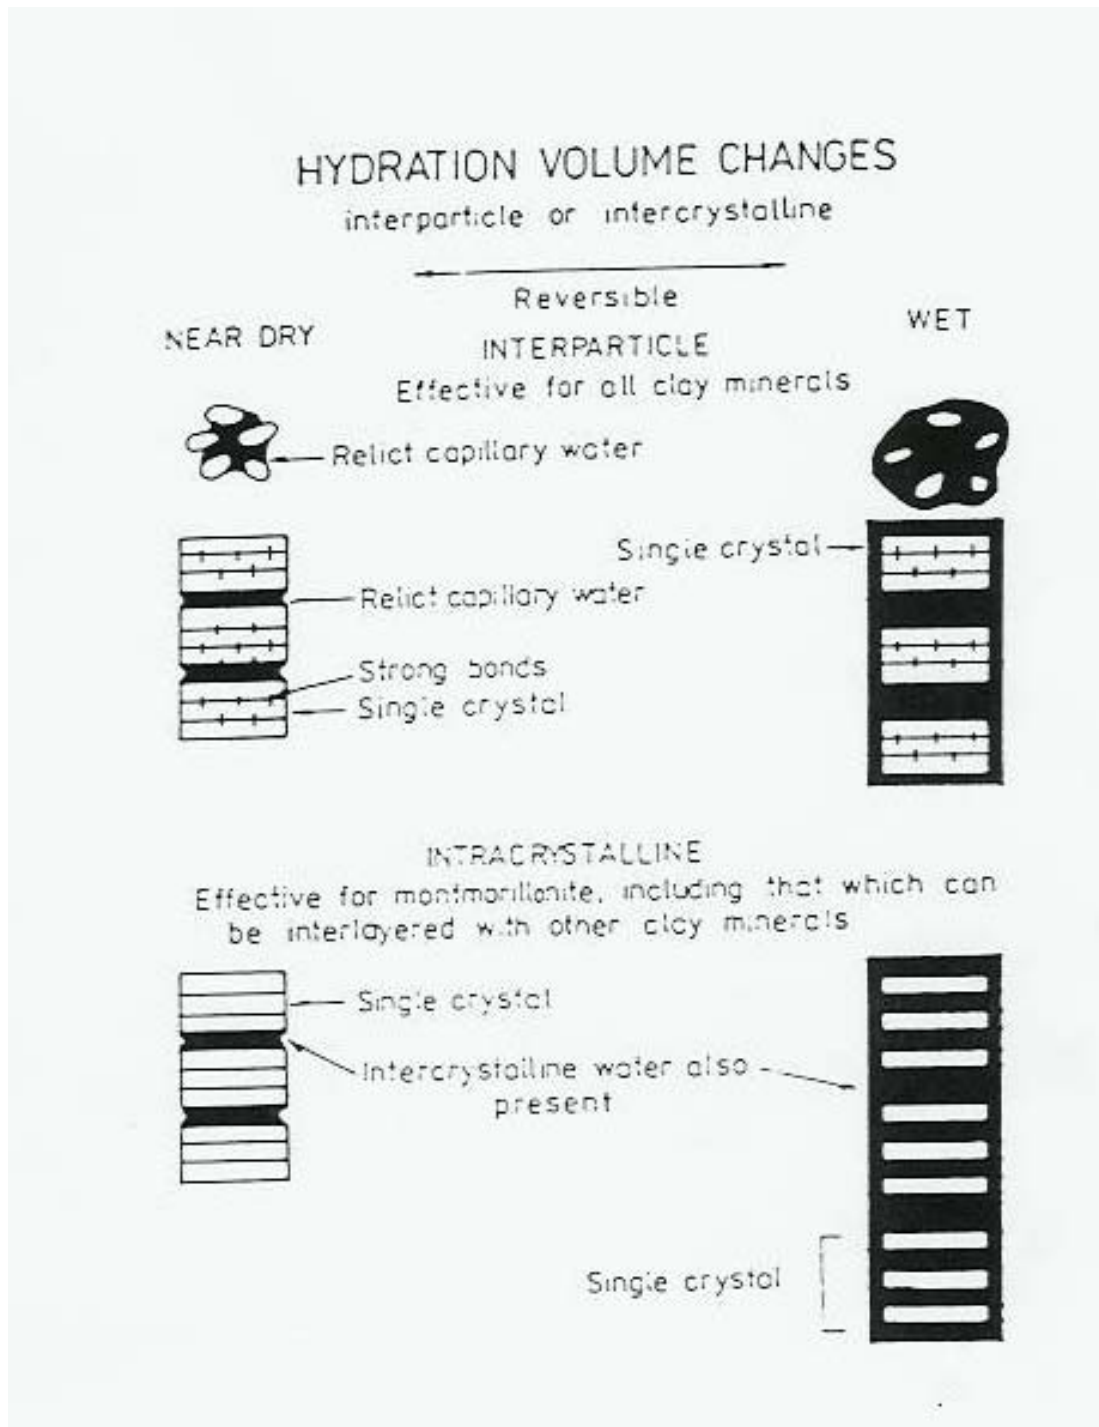 HYDRATION VOLUME CHANGES
interparticle or intercrystalline
Reversible
NEAR DRY
WET
INTERPARTICLE
Effective for all clay minerals
Relict capillary water
Single crystal
Relict capillary water
Strong bonds
Single crystal
INTRACRYSTALLINE
Effective for montmorillonite, including that which can
be interlayered with other clay minerals
Single crystal
Intercrystalline water also
present
Single crystal